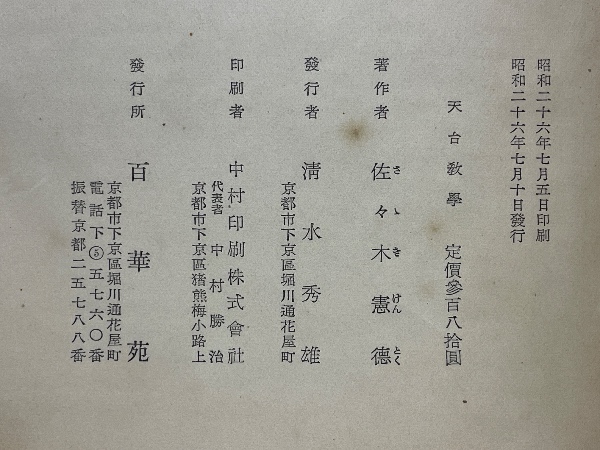 昭和二十六年七月五日印刷
昭和二十六年七月十日發行
天台教學 定價參百八拾圓
著作者 佐々木憲德
さゝきけんとく
發行者 清水秀雄
京都市下京區堀川通花屋町
印刷者 中村印刷株式會社
代表者 中村勝治
京都市下京區猪熊梅小路上
發行所 百華苑
京都市下京區堀川通花屋町
電話下⑤五七六〇番
振替京都二五七八八番